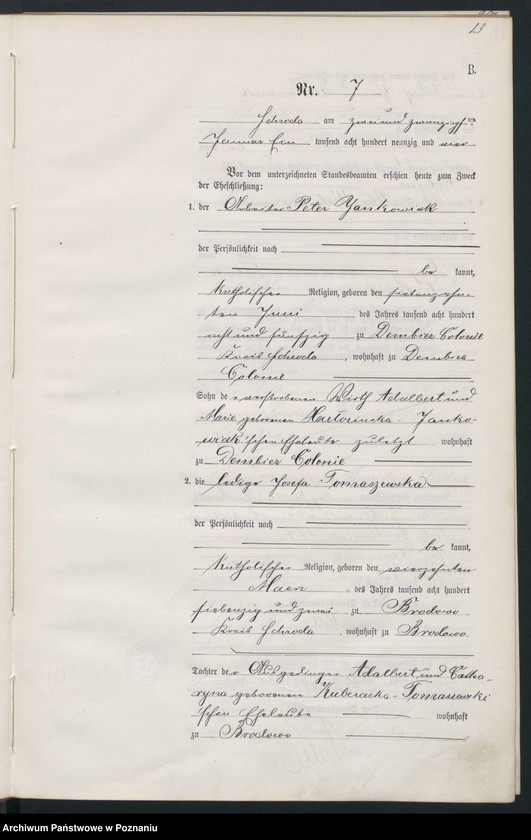 13
B.
Nr. 7
Schroda am zwei und zwanzigsten
Januar Ein tausend acht hundert neunzig und vier
Vor dem unterzeichneten Standesbeamten erschien heute zum Zweck
der Eheschließung:
1. der Arbeiter Peter Jankowiak
der Persönlichkeit nach
be kannt,
Katholischer Religion, geboren den siebenzehn
ten Juni des Jahres tausend acht hundert
acht und fünfzig zu Dembiec Colonie
Kreis Schroda, wohnhaft zu Dembiec
Colonie
Sohn der verstorbenen Wirth Adalbert und
Marie geborenen Jankо-
wiak'schen Eheleute zuletzt wohnhaft
zu Dembiec Colonie
2. die ledige Josefa Tomaszewska
der Persönlichkeit nach
be kannt,
Katholischer Religion, geboren den vierzehnten
Maerz des Jahres tausend acht hundert
siebenzig und zwei zu Brodowo
Kreis Schroda, wohnhaft zu Brodowo
Tochter der Ausgedinger Adalbert und Catha-
ryna geborenen Kuberacka-Tomaszewski
'schen Eheleute wohnhaft
zu Brodowo
Archiwum Państwowe w Poznaniu